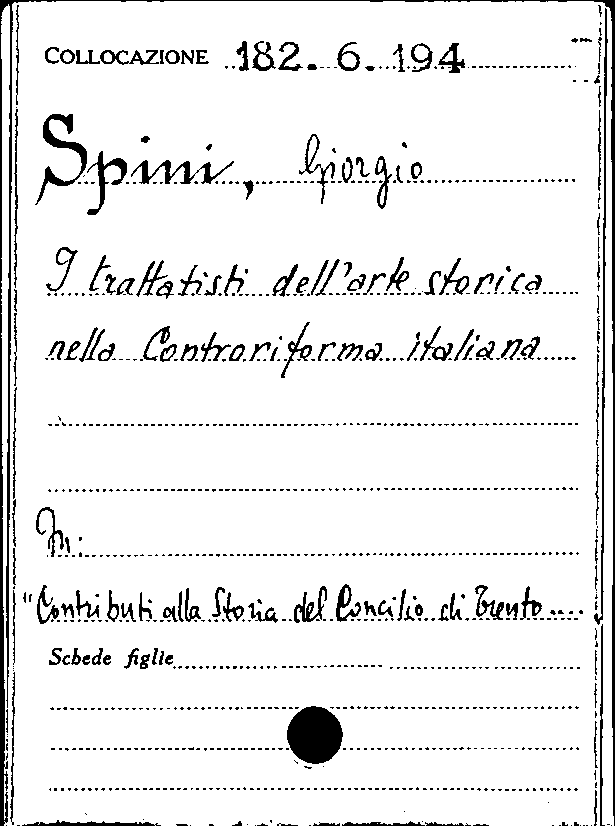 COLLOCAZIONE 182. 6. 194
Spini, Giorgio
I trattatisti dell'arte storica
nella Controriforma italiana
In:
"Contributi alla Storia del Concilio di Trento....
Schede figlie